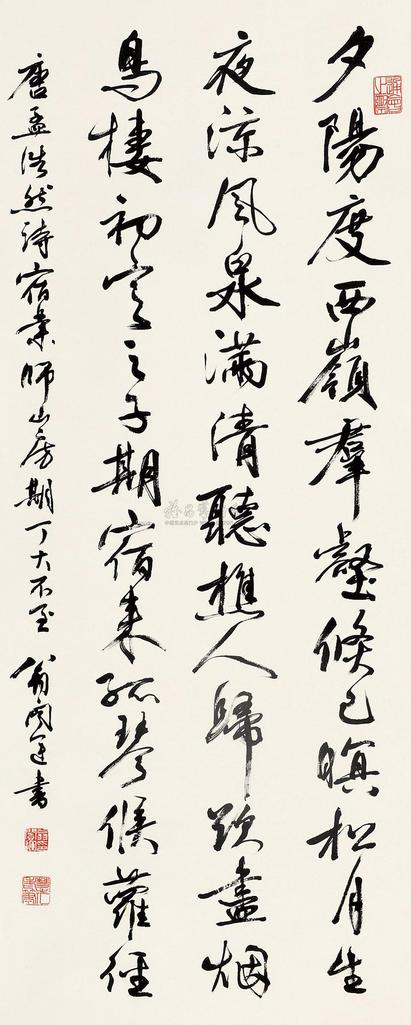 夕陽度西嶺羣壑倏已暝松月生
夜涼風泉滿清聽樵人歸欲盡烟
鳥棲初定之子期宿來孤琴候蘿徑
唐孟浩然詩宿業師山房期丁大不至 翁闓運書